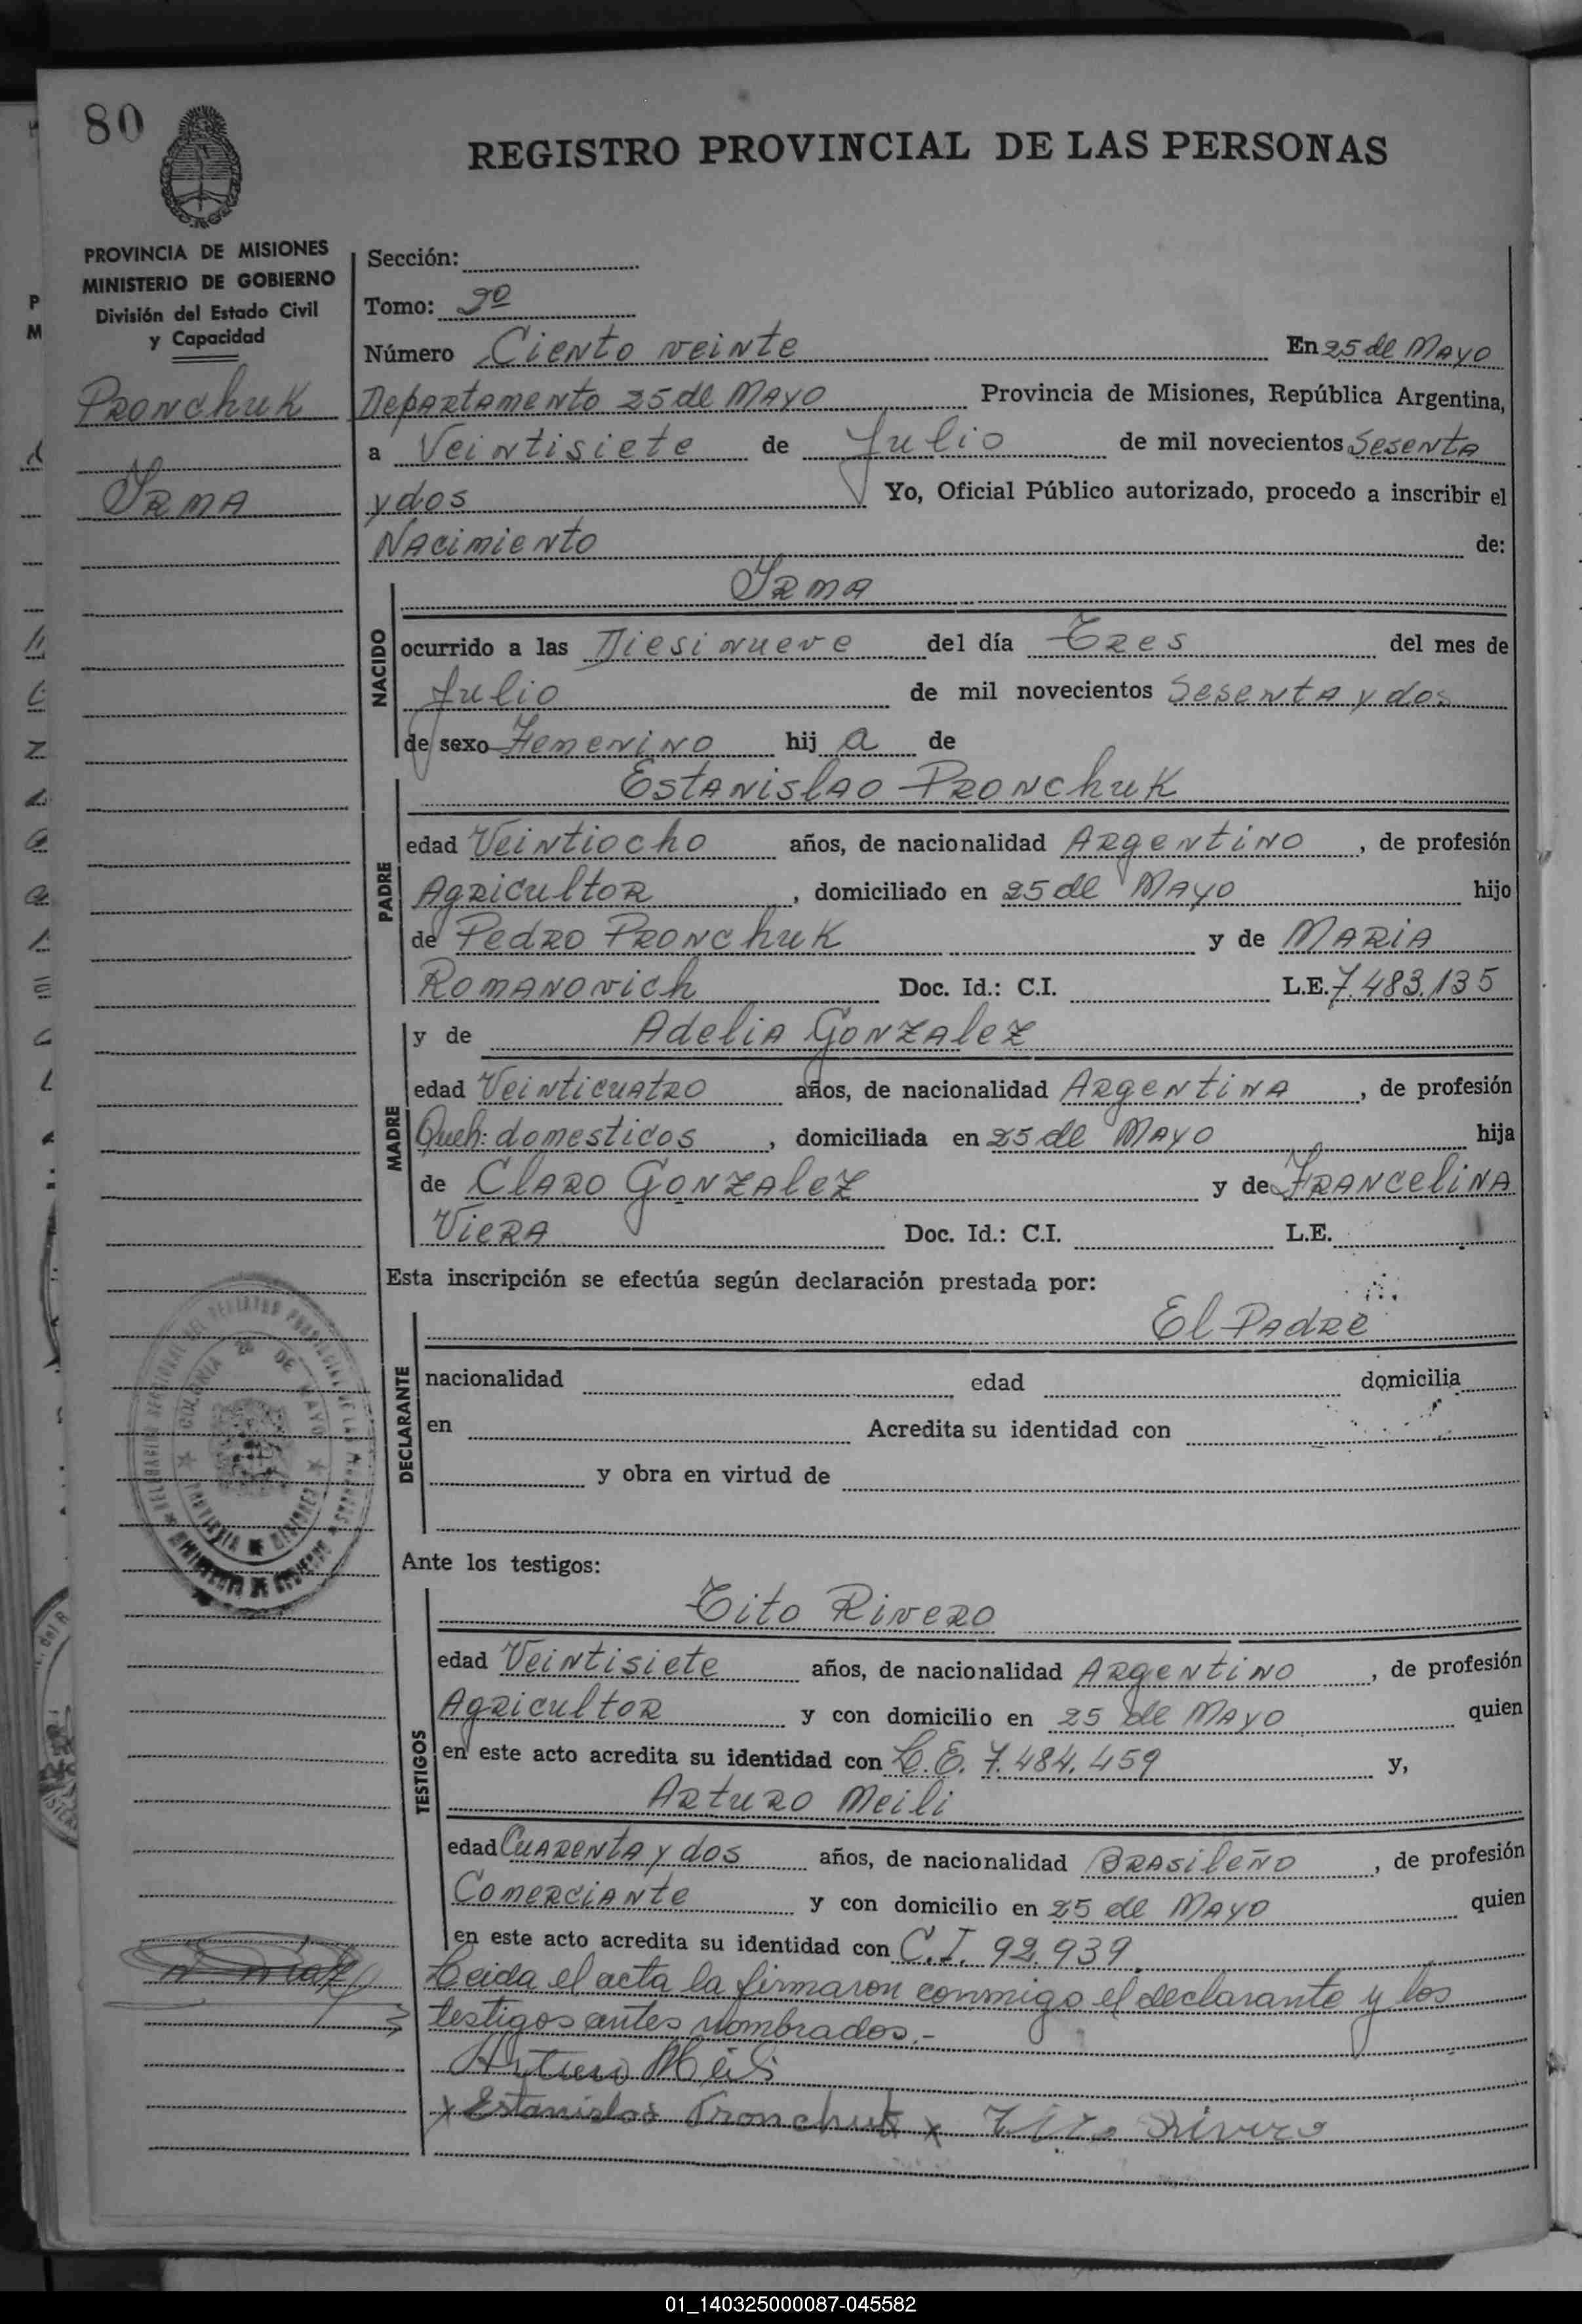 80
REGISTRO PROVINCIAL DE LAS PERSONAS
PROVINCIA DE MISIONES
MINISTERIO DE GOBIERNO
División del Estado Civil
y Capacidad
Pronchuk
Irma
Sección:
Tomo: 2º
Número Ciento veinte En 25 de Mayo
Departamento 25 de Mayo Provincia de Misiones, República Argentina,
a Veintisiete de Julio de mil novecientos Sesenta
y dos Yo, Oficial Público autorizado, procedo a inscribir el
Nacimiento de:
NACIDO
Irma
ocurrido a las Diesinueve del día Tres del mes de
Julio de mil novecientos Sesenta y dos
de sexo Femenino hij a de
PADRE
Estanislao Pronchuk
edad Veintiocho años, de nacionalidad Argentino, de profesión
Agricultor, domiciliado en 25 de Mayo hijo
de Pedro Pronchuk y de Maria
Romanovich Doc. Id.: C.I. L.E. 7.483.135
MADRE
y de Adelia Gonzalez
edad Veinticuatro años, de nacionalidad Argentina, de profesión
Queh: domesticos, domiciliada en 25 de Mayo hija
de Claro Gonzalez y de Francelina
Viera Doc. Id.: C.I. L.E.
Esta inscripción se efectúa según declaración prestada por:
DECLARANTE
El Padre
nacionalidad edad domicilia
en Acredita su identidad con
y obra en virtud de
Ante los testigos:
TESTIGOS
Tito Rivero
edad Veintisiete años, de nacionalidad Argentino, de profesión
Agricultor y con domicilio en 25 de Mayo quien
en este acto acredita su identidad con L.E. 7.484.459 y,
Arturo Meili
edad Cuarenta y dos años, de nacionalidad Brasileño, de profesión
Comerciante y con domicilio en 25 de Mayo quien
en este acto acredita su identidad con C.I. 92.939.
Leida el acta la firmaron conmigo el declarante y los
testigos antes nombrados.-
Arturo Meili
x Estanislao Pronchuk x Tito Rivero
01_140325000087-045582